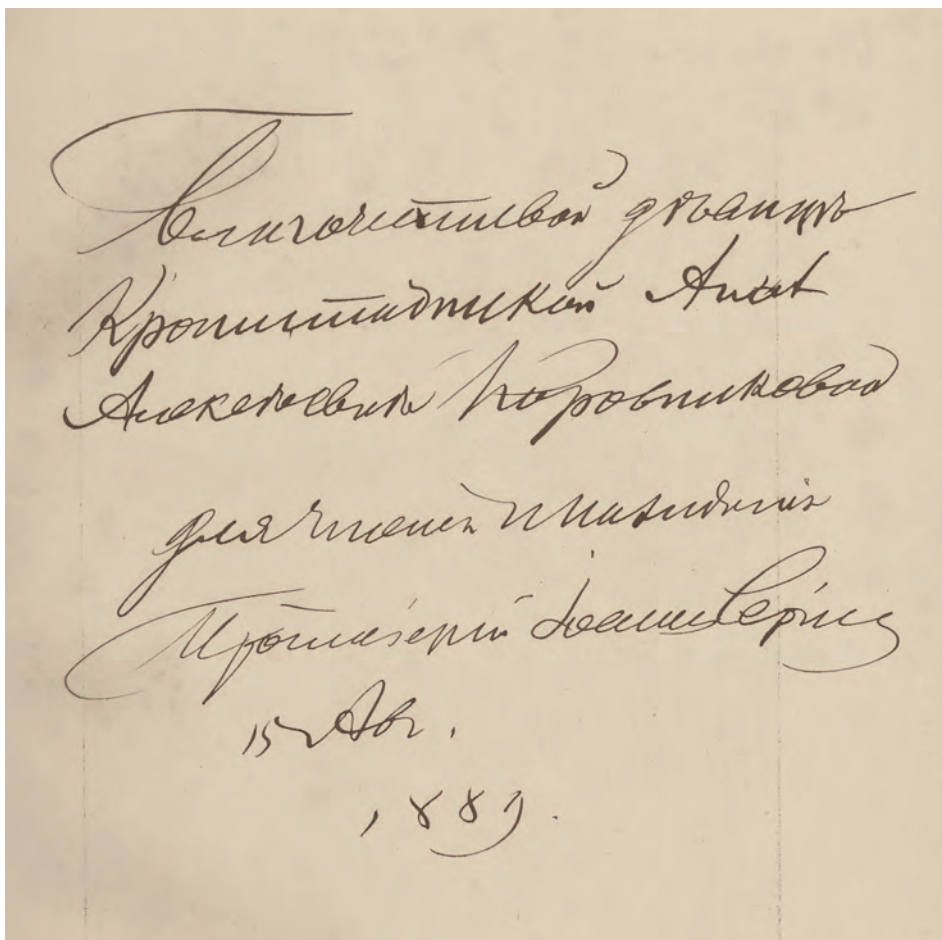 Благочестивой дѣвицѣ
Кронштадтской Аннѣ
Алексѣевнѣ Коровниковой
для чтенія и назиданія
Протоіерей Іоаннъ Сергіевъ
15 Авг.
1889.